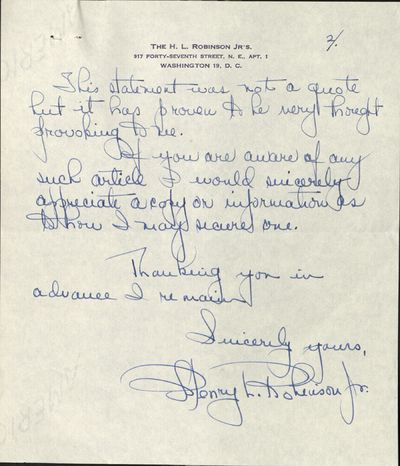 THE H. L. ROBINSON JR'S.
917 FORTY-SEVENTH STREET, N. E., APT. 1
WASHINGTON 19, D. C.
2/.
This statement was not a quote
but it has proven to be very thought
provoking to me.
If you are aware of any
such article I would sincerely
appreciate a copy or information as
to how I may secure one.
Thanking you in
advance I remain
Sincerely yours,
Henry L. Robinson Jr.